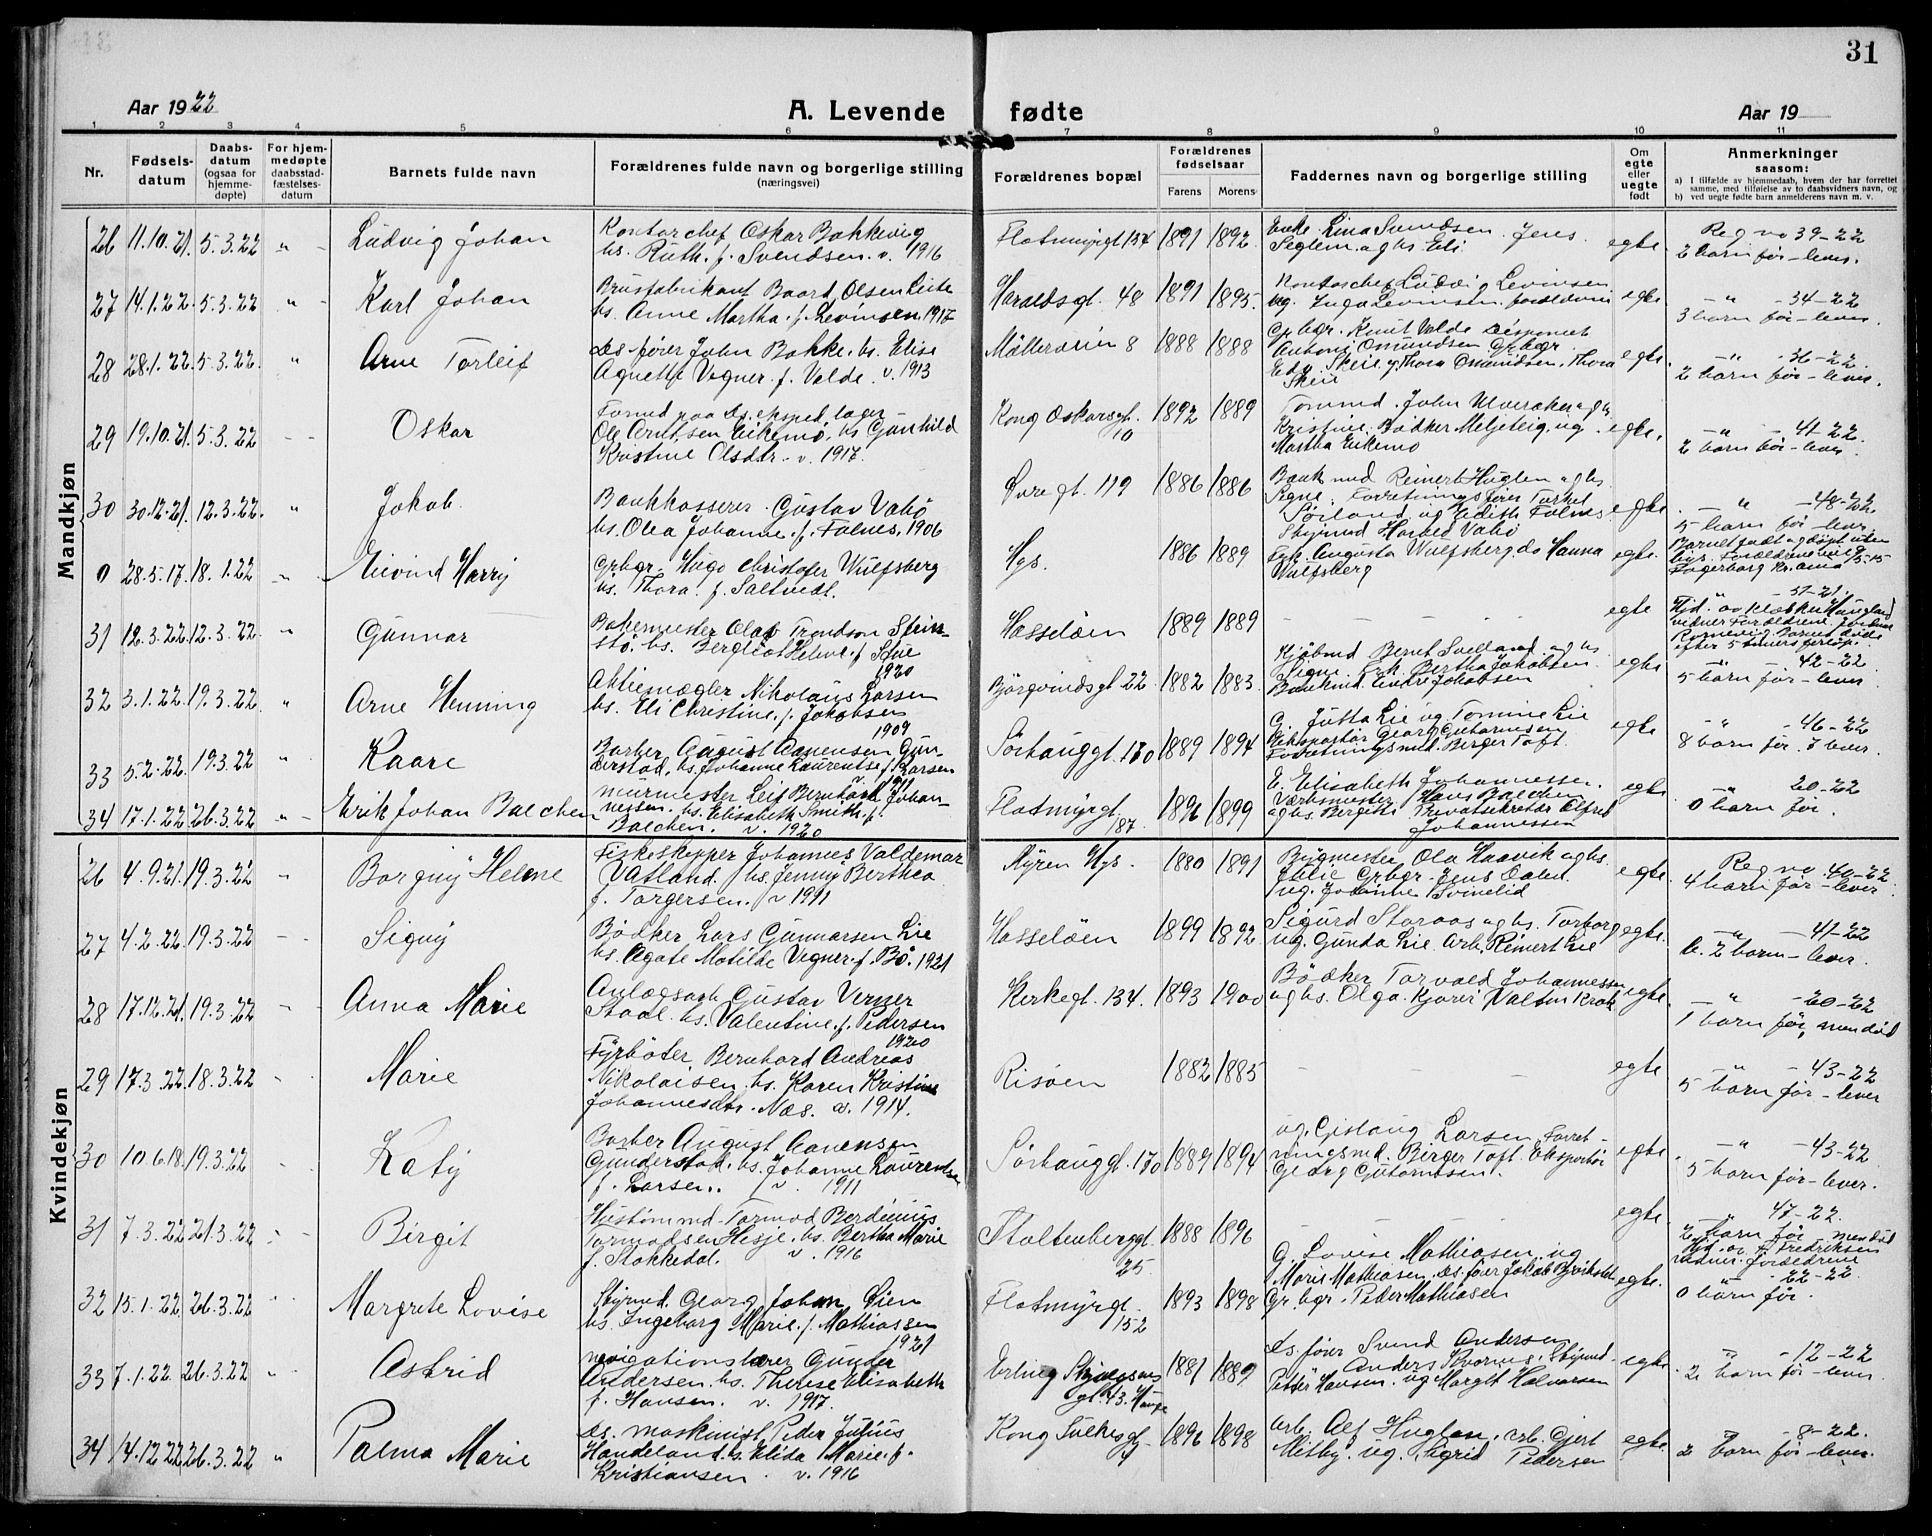 31
Aar 1922
A. Levende fødte
Aar 19
1 2 3 4 5 6 7 8 9 10 11
Nr.
Fødsels-
datum
Daabs-
datum
(ogsaa for
hjemme-
døpte)
For hjem-
medøpte
daabsstad-
fæstelses-
datum
Barnets fulde navn
Forældrenes fulde navn og borgerlige stilling
(næringsvei)
Forældrenes bopæl
Forældrenes
fødselsaar
Farens Morens
Faddernes navn og borgerlige stilling
Om
egte
eller
uegte
født
Anmerkninger
saasom:
a) I tilfælde av hjemmedaab, hvem der har forrettet
samme, med tilføielse av to daabsvidners navn, og
b) ved uegte fødte barn anmelderens navn m. v.
Mandkjøn
26 11.10.21. 5.3.22 Ludvig Johan
Kontorchef Oskar Bakkevig
hs. Ruth f. Svendsen v. 1916
Flotmyrgt 134 1891 1892
Enke Lina Svendsen. Jens
Seglem og hs Eli
egte
Reg no 39-22
2 barn før - lever.
27 14.1.22. 5.3.22 Karl Johan
Brusfabrikant Baard Olsen Leite
hs. Anne Martha f. Levinsen 1917
Haraldsgt. 48 1891 1895
Kontorchef Ludvig Levinsen
ug. Inga Levinsen, forældrene
egte
34-22
3 barn før - lever.
28 28.1.22. 5.3.22 Arne Torleif
ds. fører John Bakke. hs. Elise
Agnethe Vegner f. Valde. v. 1913
Møllerveien 8 1888 1888
Grbgr. Knut Valde Disponent
Osmundsen Grbgr.
Skeie og Thora Osmundsen, Thora
Skeie
egte
36-22
2 barn før - lever.
29 19.10.21. 5.3.22 Oskar
Formd paa ds. exped. lager
Eikemo, hs Gunhild
Kristine Olsdtr. v. 1917.
Kong Oskarsgt. 10 1892 1889
Tommd. John
Kristine. Bødker Meljeteig, ug.
Martha Eikemo
egte.
41-22.
2 barn før - lever.
30 30.12.21. 12.3.22. Jakob.
Bankkasserer. Gustav Vabø
hs. Olea Johanne f. Folnes. 1906
Øvregt. 119 1886 1886
Bankmd Reinert Huglen og hs.
Signe. Forretningsfører Torkel
Søiland ug Edith Folnes
Styrmd Vabø
egte
48-22.
5 barn før - lever
0 28.5.17. 18.1.22 Eivind Harry
Grbgr. Hugo Christofer Wulfsberg
hs. Thora. f. Saltvedt.
Hgs. 1886 1889
Frk. Augusta Wulfsberg do Hanna
Wulfsberg
egte.
31 12.3.22. 12.3.22. Gunnar
Bakemester Olav Trondson
hs. Bergliot Helene f.
1920
Hasseløen 1889 1889
egte
51-21.
Hjd. av klokker Haugland
vidner Forældrene
Barnet døde
efter 5 timers forløp.
32 3.1.22. 19.3.22 Arne Henning
Aktiemægler Nikolaus Larsen
hs. Eli Christine. f. Jakobsen
1909
Bjørgvindsgt 22 1882 1883.
Kjøbmd Bernt Svelland og hs
Signe. Frk. Bertha Jakobsen
Bankmd. Endre Jakobsen
egte
42-22
5 barn før - lever
33 5.2.22. 19.3.22 Kaare
Barber August Aanensen Gun-
derstad. hs. Johanne Laurentse f. Larsen
v. 1911
Sørhauggt. 170 1889 1894
G. Jutta Lie ug Tomine Lie
Ekspeditør Georg Gutormsen
Forretningsmd. Berger Toft.
egte
46-22
8 barn før. 7 lever.
34 17.1.22 26.3.22 Erik Johan Balchen
Murmester Leif Bernhard Johan-
nessen. hs. Elisabeth Smith f.
Balchen. v. 1920
Flotmyrgt. 187 1896 1899
E. Elisabeth Johannessen.
Værksmester Hans Balchen
og hs. Bergithe Privatsekretær Alfred
Johannessen
egte
20-22
0 barn før.
Kvindekjøn
26 4.9.21. 19.3.22 Borgny Helene
Fiskeskipper Johannes Valdemar
Vatland. hs. Jenny Berthea
f. Torgersen. v 1911
Myren Hgs. 1880 1891
Bygmester Ola Haavik og hs.
Julie Grbgr. Jens Dalen
ug. Josefine
egte.
Reg no. 40-22
4 barn før - lever
27 4.2.22. 19.3.22 Signy
Bødker Lars Gunnarsen Lie
hs. Agate Matilde Vegner f. Bø. 1921
Hasseløen 1899 1892
Sigurd Staraas og hs. Torborg
ug. Gunda Lie Arb. Reinert Lie
egte.
41-22
2 barn - lever.
28 17.12.21. 19.3.22 Anna Marie
Gustav Verner
Staal. hs. Valentine. f. Pedersen
1920
Kirkegt. 134. 1893 1900
Bødker Torvald Johannessen
og hs. Olga.
egte.
20-22
1 barn før, men død
29 17.3.22. 18.3.22 Marie
Fyrbøter Bernhard Andreas
Nikolaisen hs. Karen Kristine
Johannesdtr. Næs. v. 1914.
Risøen 1882 1885
egte
43-22
5 barn før - lever
30 10.6.18. 19.3.22 Katy
Barber August Aanensen
Gunderstad. hs. Johanne Laurentse
f. Larsen. v. 1911
Sørhauggt. 170 1889 1894
ug. Gislaug Larsen. Forret-
ningsmd. Birger Toft. Ekspeditør
Georg Gutormsen.
egte
43-22
5 barn før - lever.
31 7.3.22. 21.3.22 Birgit
Tormod Berdinius
Tormodsen Hesje. hs. Bertha Marie
f. Stokkedal. v. 1916
Stoltenberggt. 25 1888 1896
egte
47-22.
2 barn før men død
Hjd. av F. Fredriksen
vidner forældrene
32 15.1.22. 26.3.22 Margrete Lovise
Styrmd. Georg Johan Lien
hs. Ingeborg Marie. f. Mathiassen
1921
Flotmyrgt. 152 1893 1898
G. Lovise Mathiasen, ug
Marie Mathiasen. ds. fører Jakob
Gr.bgr. Peder Mathiasen
egte.
22-22
0 barn før.
33 7.1.22. 26.3.22 Astrid
Navigationslærer Gunder
Andersen. hs. Therese Elisabeth
f. Hansen. v. 1917.
Erling Skjalgsons
gt. 43. 1881 1889
ds. fører Svend Andersen
Anders Styrmd.
Petter Hansen. ug Margit Halvorsen
egte.
12-22
2 barn før - lever.
34 14.12.22 26.3.22 Palma Marie
ds. maskinist Peder Julius
Handeland. hs. Elida Marie. f.
Kristiansen. v. 1916
Kong Sulkesgt. 1896 1898
Arb. Alf Huglen. arb. Gjert
ug. Sigrid Pedersen
egte
8-22.
2 barn før - lever.